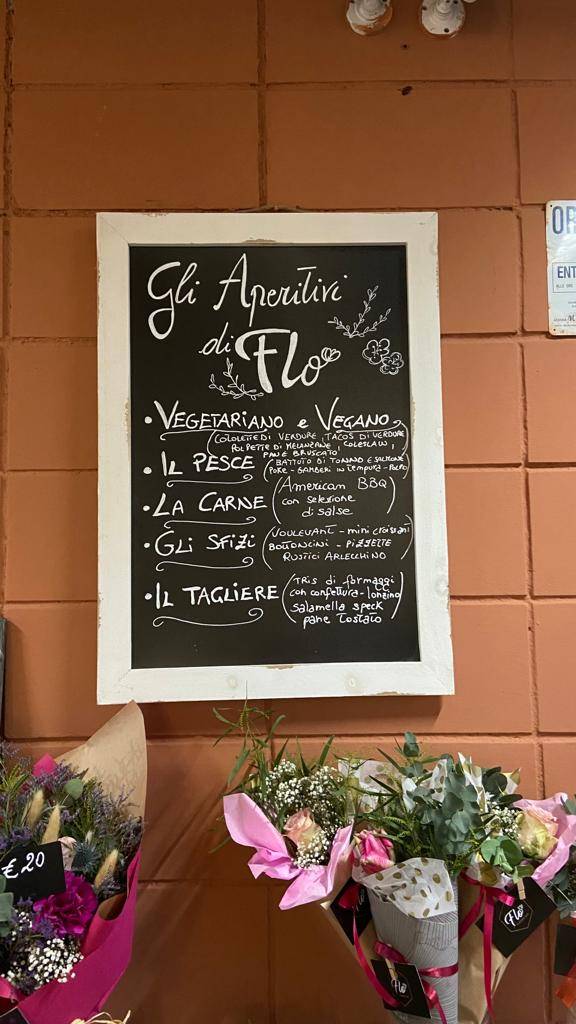 Gli Aperitivi
di Flo
• VEGETARIANO e VEGANO
(COTOLETTE DI VERDURE, TACOS DI VERDURE
POLPETTE DI MELANZANE, COLESLAW,
PANE BRUSCATO)
• IL PESCE (BATTUTO DI TONNO E SALMONE
POKE - GAMBERI IN TEMPURA - POLPO)
• LA CARNE (American BBQ
con selezione
di salse)
• GLI SFIZI (VOULEVANT - mini croissant
BOTTONCINI - PIZZETTE
RUSTICI ARLECCHINO)
• IL TAGLIERE (TRIS di formaggi
con confettura - lonzino
salamella speck
pane tostato)
OR
ENT
€20
Flo
Flo